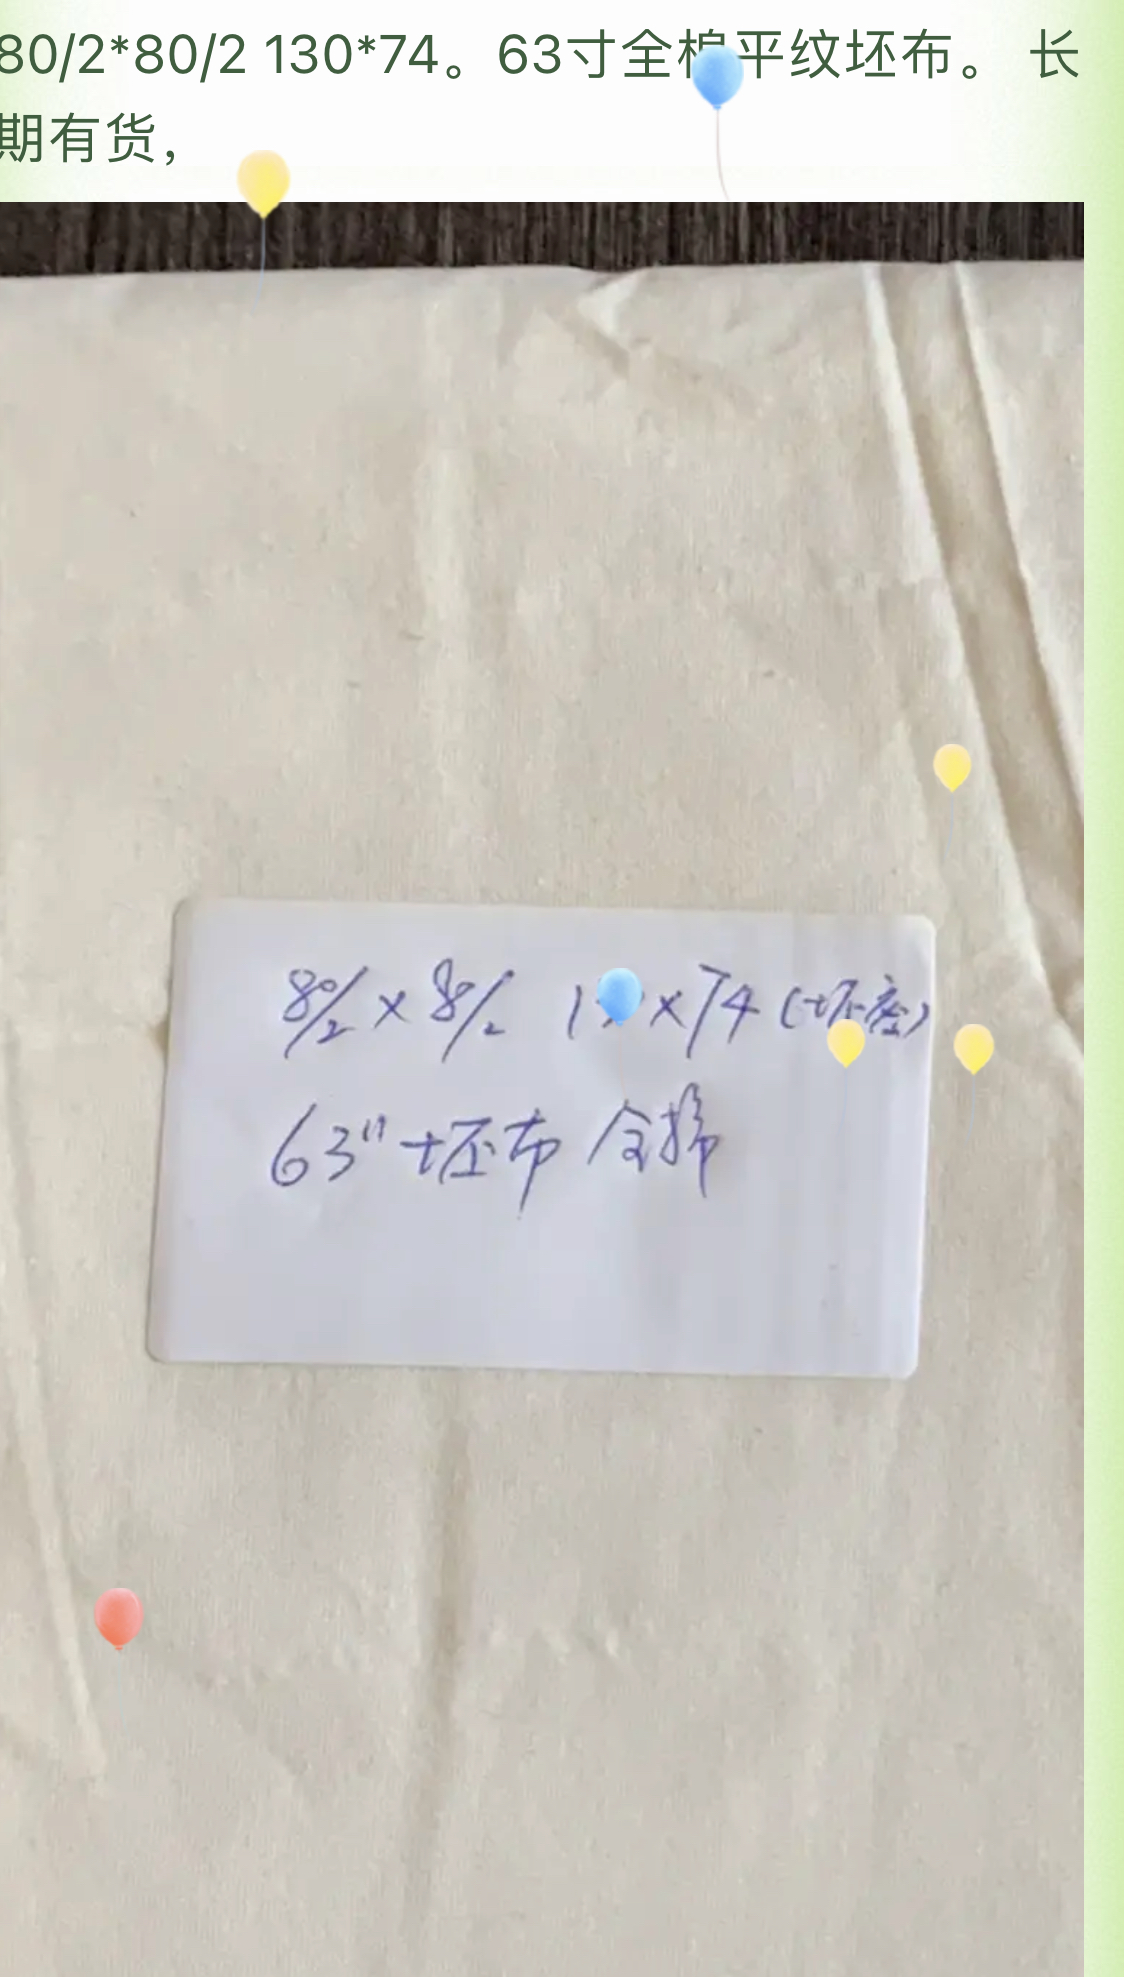 80/2*80/2 130*74。63寸全棉平纹坯布。 长
期有货，
80/2 × 80/2 1 ×74 (坯度)
63" 坯布 全棉